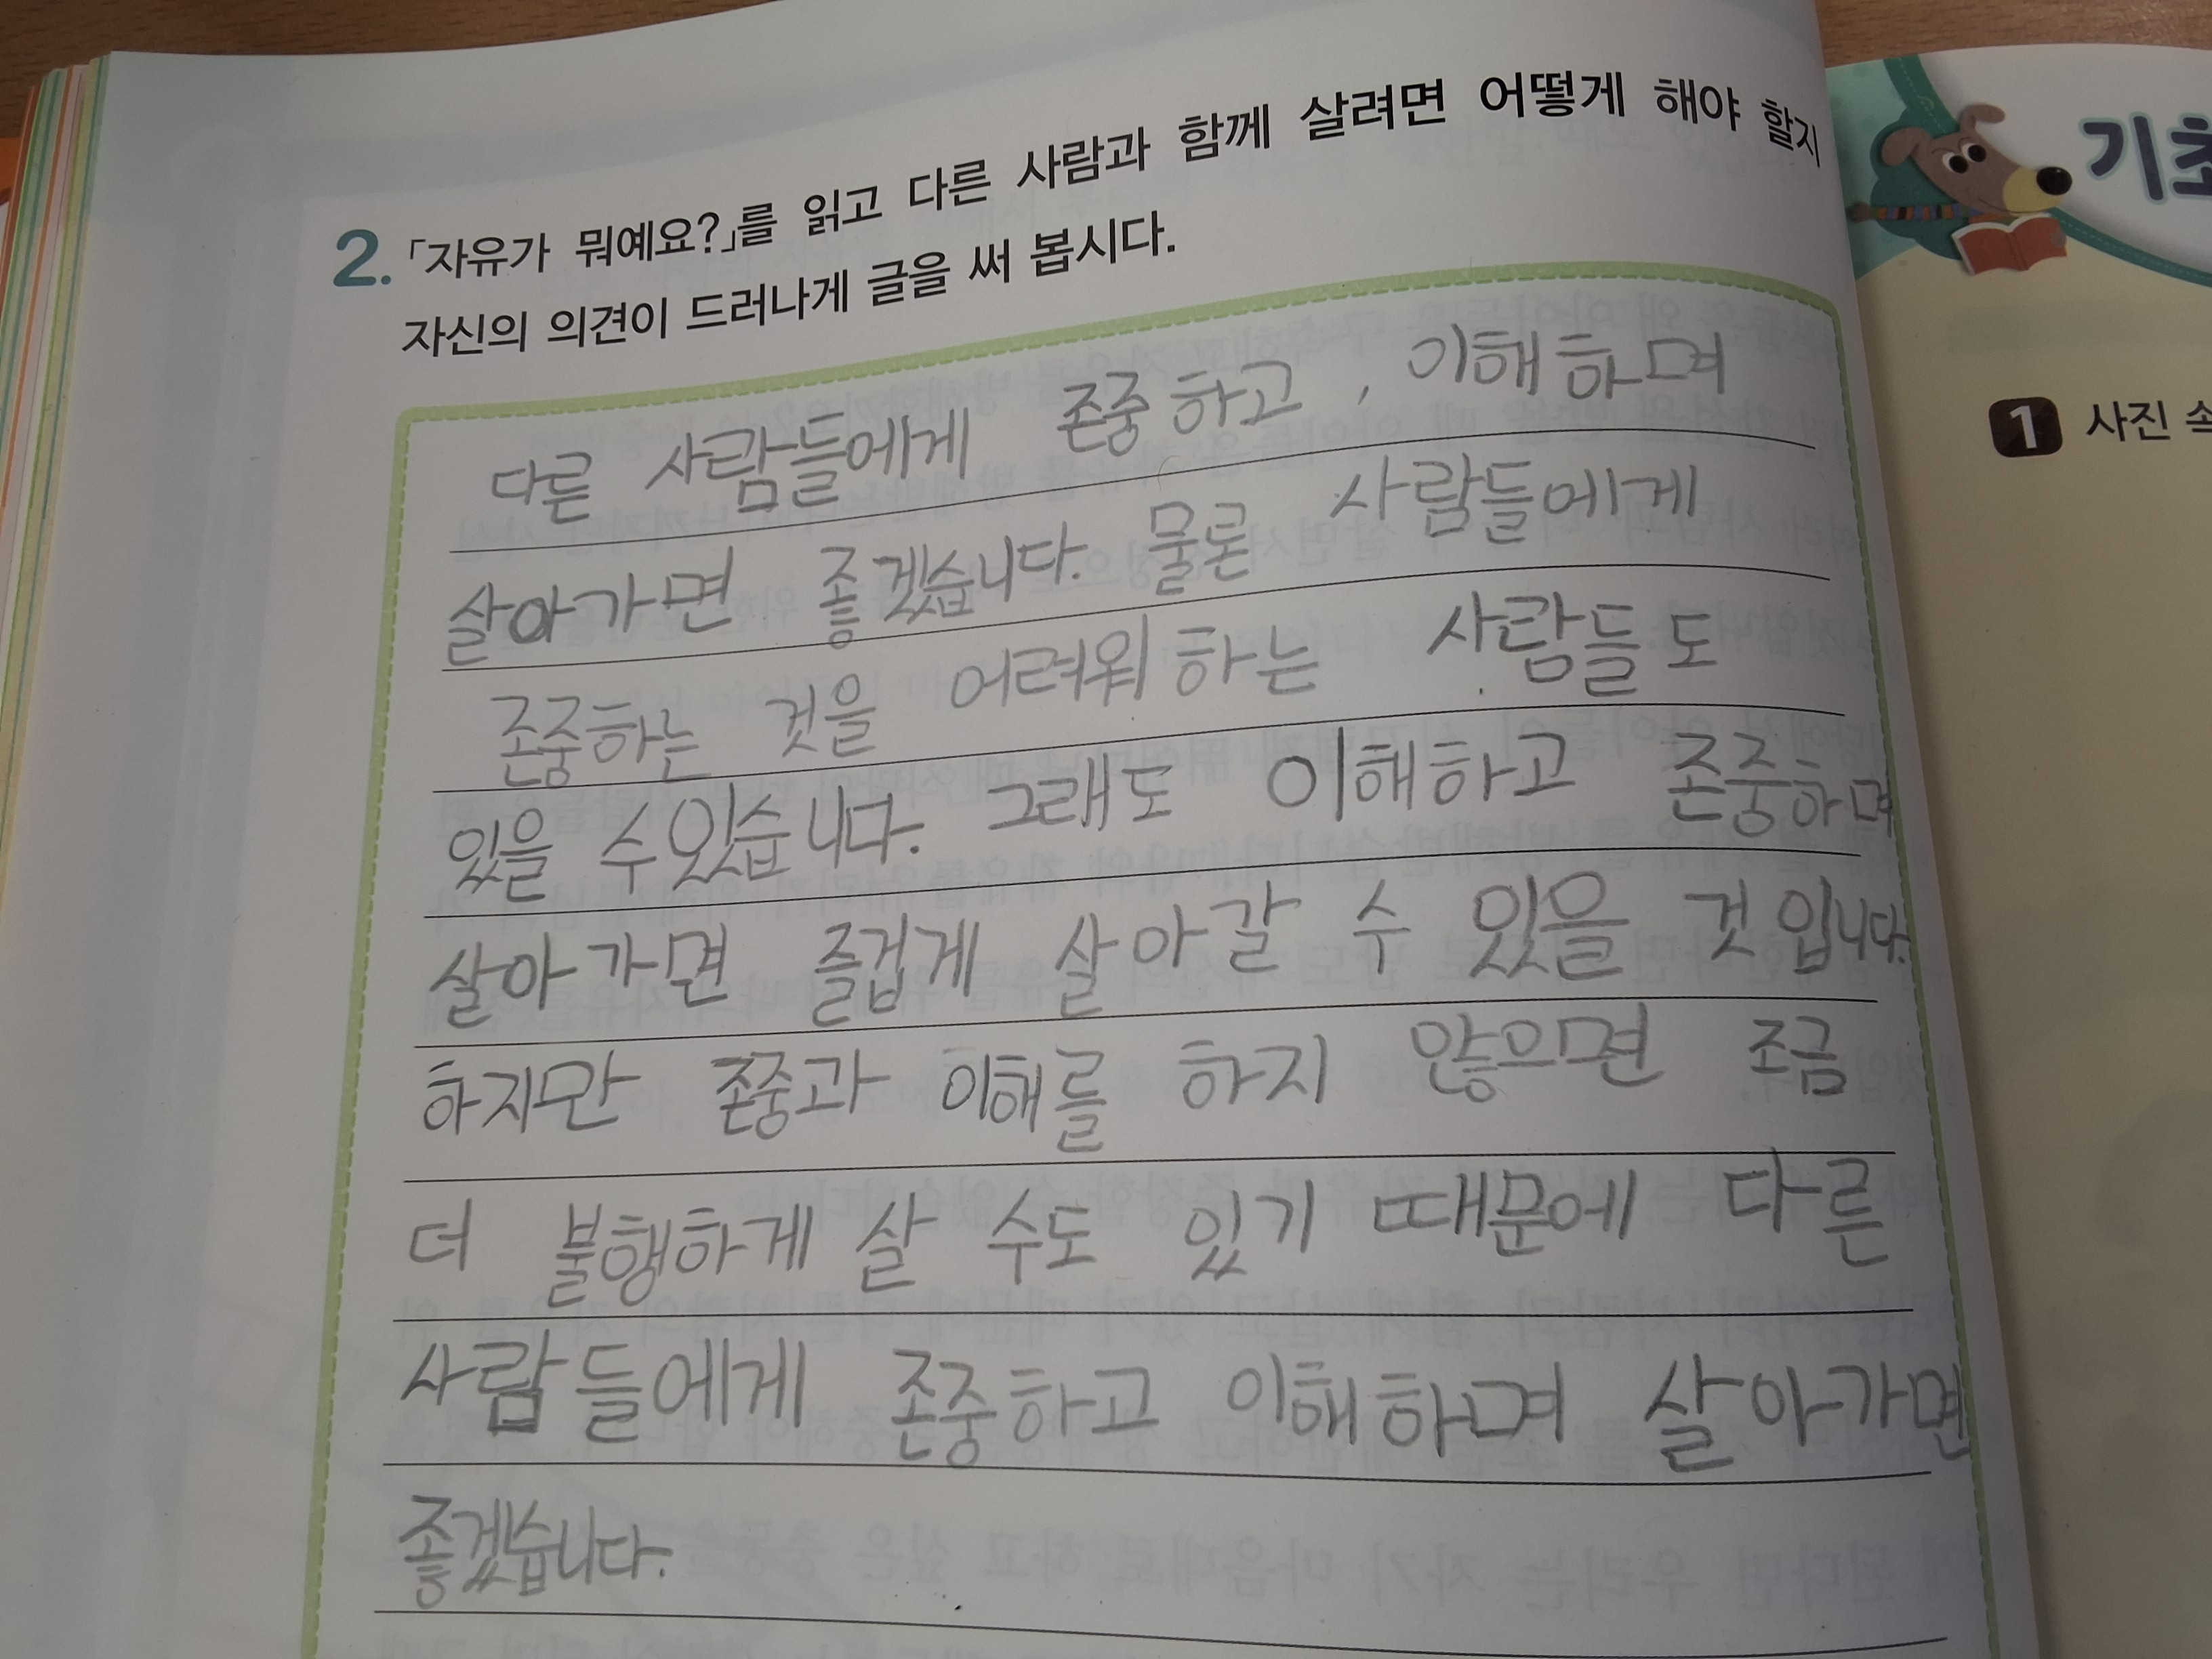 2. 「자유가 뭐예요?」를 읽고 다른 사람과 함께 살려면 어떻게 해야 할지
자신의 의견이 드러나게 글을 써 봅시다.
다른 사람들에게 존중하고, 이해하며
살아가면 좋겠습니다. 물론 사람들에게
존중하는 것을 어려워하는 사람들도
있을 수있습니다. 그래도 이해하고 존중하며
살아가면 즐겁게 살아갈 수 있을 것입니다.
하지만 존중과 이해를 하지 않으면 조금
더 불행하게 살 수도 있기 때문에 다른
사람들에게 존중하고 이해하며 살아가면
좋겠습니다.
기초
1 사진 속